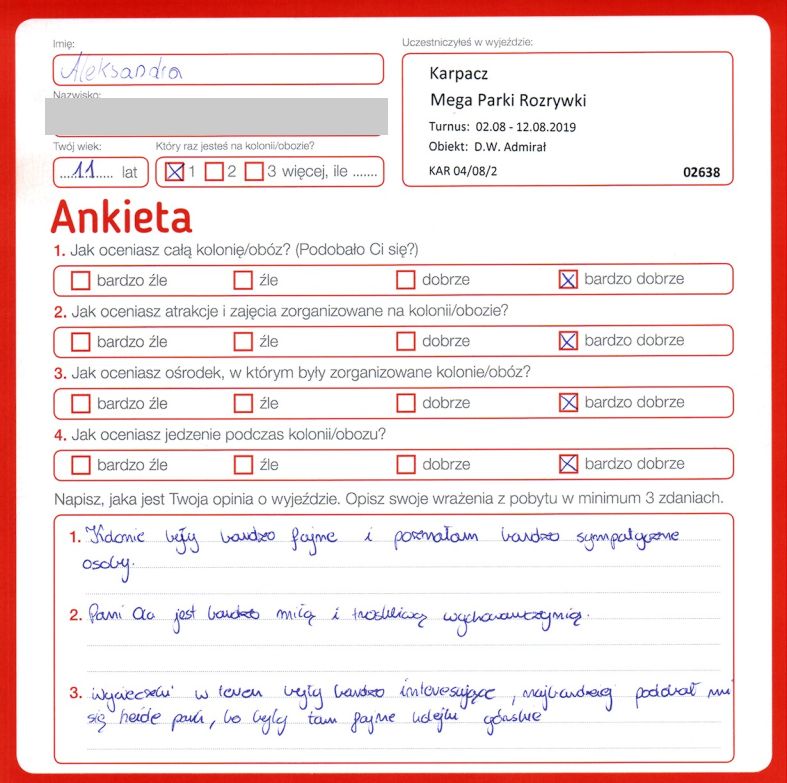 Imię:
Aleksandra
Nazwisko:
Twój wiek:
11 lat
Który raz jesteś na kolonii/obozie?
1 2 3 więcej, ile .......
Uczestniczyłeś w wyjeździe:
Karpacz
Mega Parki Rozrywki
Turnus: 02.08 - 12.08.2019
Obiekt: D.W. Admirał
KAR 04/08/2 02638
Ankieta
1. Jak oceniasz całą kolonię/obóz? (Podobało Ci się?)
bardzo źle źle dobrze bardzo dobrze
2. Jak oceniasz atrakcje i zajęcia zorganizowane na kolonii/obozie?
bardzo źle źle dobrze bardzo dobrze
3. Jak oceniasz ośrodek, w którym były zorganizowane kolonie/obóz?
bardzo źle źle dobrze bardzo dobrze
4. Jak oceniasz jedzenie podczas kolonii/obozu?
bardzo źle źle dobrze bardzo dobrze
Napisz, jaka jest Twoja opinia o wyjeździe. Opisz swoje wrażenia z pobytu w minimum 3 zdaniach.
1. Kolonie były bardzo fajne i poznałam bardzo sympatyczne
osoby.
2. Pani Ola jest bardzo miłą i troskliwą wychowawczynią.
3. wycieczki w teren były bardzo interesujące, najbardziej podobał mi
się heide park, bo były tam fajne kolejki górskie